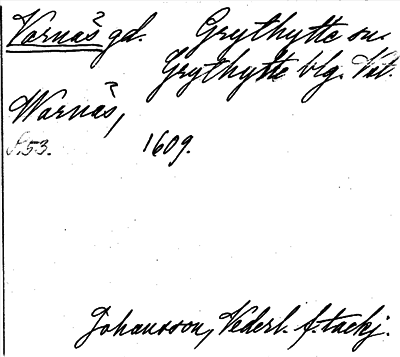 Vornäs gd. Grythytte sn.
Grythytte blg. Vstl.
Wornäs,
S.53. 1609.
Johansson, Vederl. f. tackj.